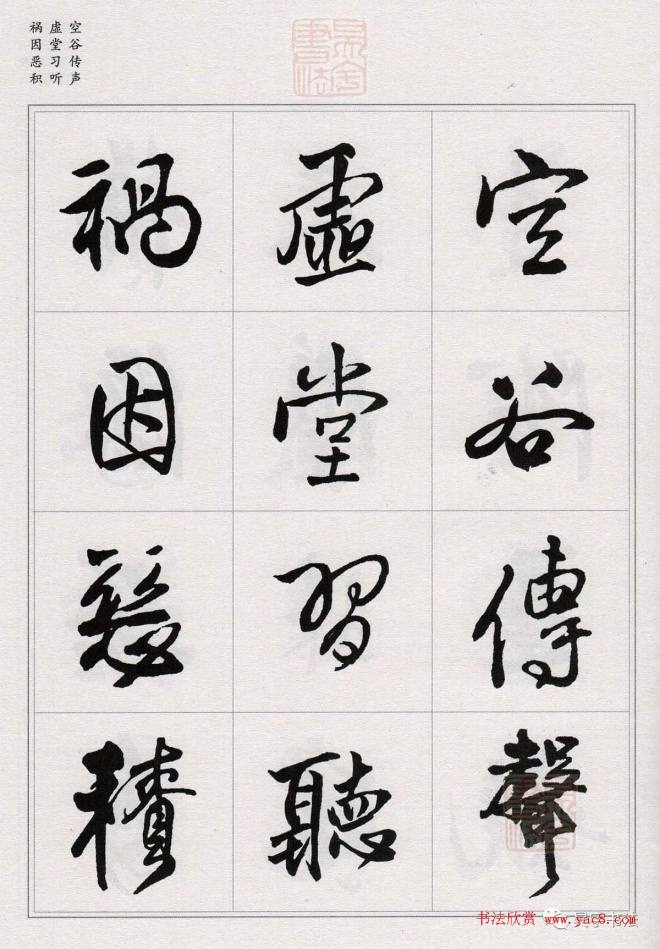 空谷传声
虚堂习听
祸因恶积
空谷傳聲
虛堂習聽
禍因惡積
书法欣赏 www.yac8.com